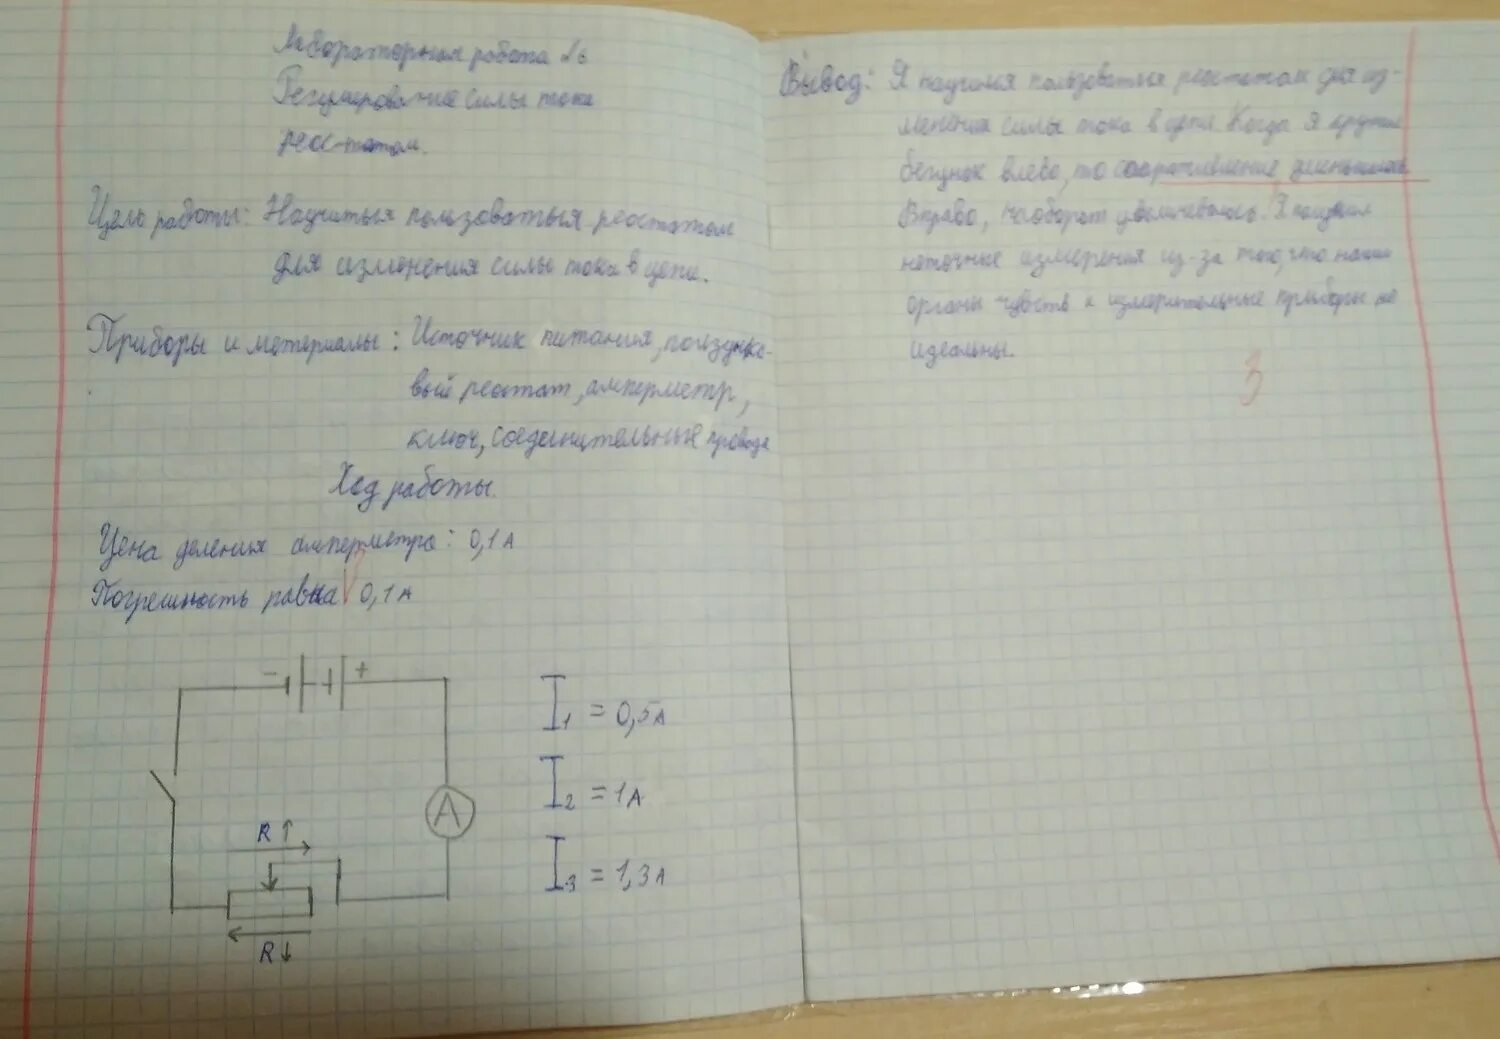 Лабораторная работа №6
Регулирование силы тока
реостатом.
Цель работы: Научиться пользоваться реостатом
для изменения силы тока в цепи.
Приборы и материалы: Источник питания, ползунко-
вый реостат, амперметр,
ключ, соединительные провода
Ход работы.
Цена деления амперметра: 0,1 А
Погрешность равна 0,1 А
- +
A
R↑
R↓
I1 = 0,5 А
I2 = 1 А
I3 = 1,3 А
Вывод: Я научился пользоваться реостатом для из-
менения силы тока в цепи. Когда я
бегунок влево, то сопротивление уменьшалось
Вправо, наоборот увеличивалось. Я получил
неточные измерения из-за того, что наши
органы чувств и измерительные приборы не
идеальны.
3